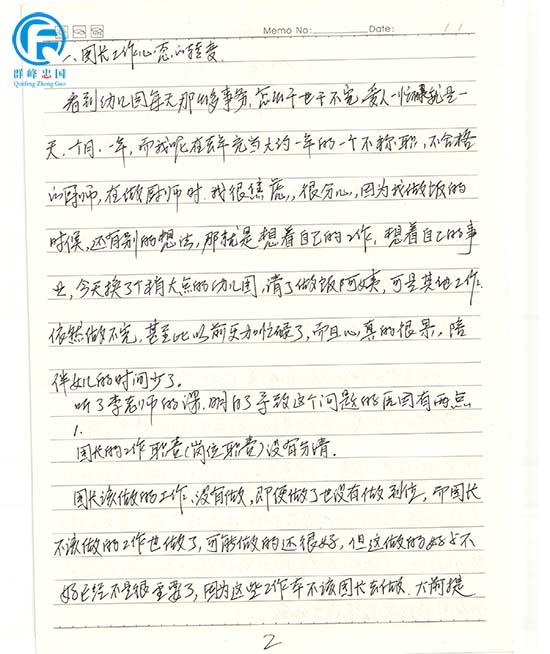 Memo No: Date: / /
群峰忠国
Qunfeng Zhong Guo
一、园长工作心态的转变
看到幼儿园每天那么多事务，怎么干也干不完，贵人一忙碌就是一
天、十月、一年，而我呢在去年充当大约一年的一个不称职，不合格
的厨师，在做厨师时，我很焦虑，很分心，因为我做饭的
时候，还有别的想法，那就是想着自己的工作，想着自己的事
业，今天换了个稍大点的幼儿园，请了做饭阿姨，可是其他工作
依然做不完，甚至比以前更加忙碌了，而且心真的很累，陪
伴女儿的时间少了。
听了李老师的课，明白了导致这个问题的原因有两点
1.
园长的工作职责(岗位职责)没有分清.
园长该做的工作，没有做，即便做了也没有做到位，而园长
不该做的工作也做了，可能做的还很好，但这做的好与不
好已经不是很重要了，因为这些工作本不该园长去做. 大前提
2